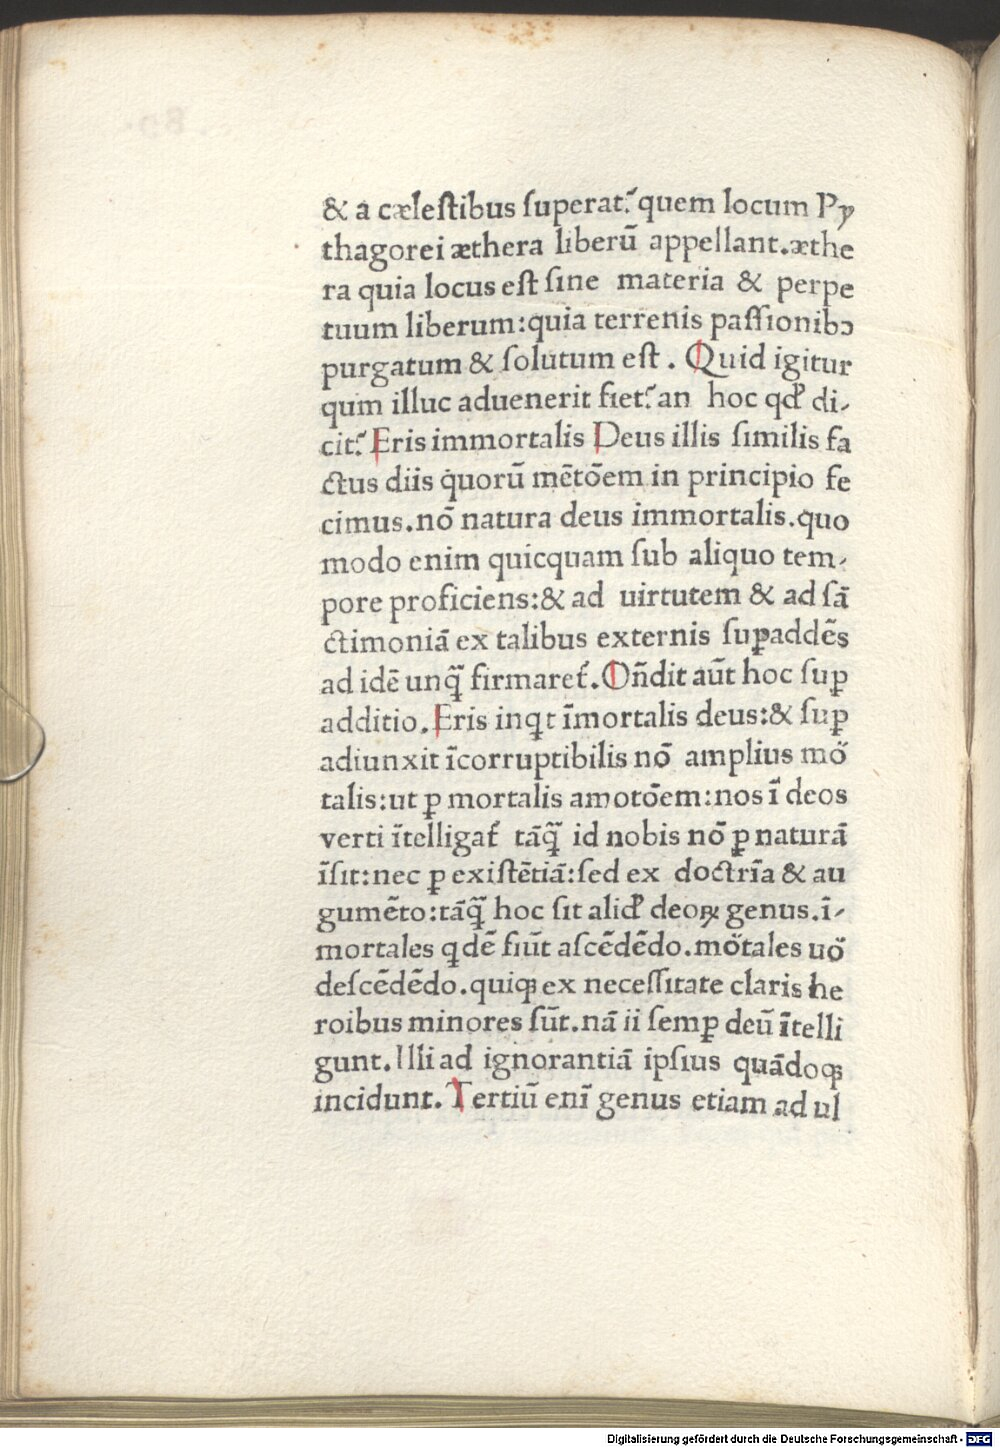 & a cælestibus ſuperat᷑ quem locum Py
thagorei æthera liberū appellant.æthe
ra quia locus est ſine materia & perpe
tuum liberum:quia terrenis paſſionibꝰ
purgatum & ſolutum eſt . Quid igitur
qum illuc aduenerit fiet᷑ an hoc qd̓ di⸗
cit᷑ Eris immortalis Deus illis ſimilis fa
ctus diis quorū mētōem in principio fe
cimus.nō natura deus immortalis.quo
modo enim quicquam ſub aliquo tem⸗
pore proficiens:& ad uirtutem & ad ſā
ctimoniā ex talibus externis ſuꝑaddēs
ad idē unq̄̃ firmaret᷑.Oñdit aūt hoc ſuꝑ
additio.Eris inqt īmortalis deus:& ſuꝑ
adiunxit īcorruptibilis nō amplius mo᷑
talis:ut ꝑ mortalis amotōem:nos ī deos
verti ītelligat᷑ tāq̄̃ id nobis nō ꝑ naturā
īſit:nec ꝑ exiſtētiā:ſed ex doctrīa & au
gumēto:tāq̄̃ hoc ſit alid̓ deoꝝ genus.ī⸗
mortales qdē fiūt aſcēdēdo.mo᷑tales uo᷑
deſcēdēdo.quiqꝫ ex neceſſitate claris he
roibus minores ſūt.nā ii ſemꝑ deū ītelli
gunt.Illi ad ignorantiā ipſius quādoqꝫ
incidunt. Tertiū enī genus etiam ad ul
Digitalisierung gefördert durch die Deutsche Forschungsgemeinschaft - DFG